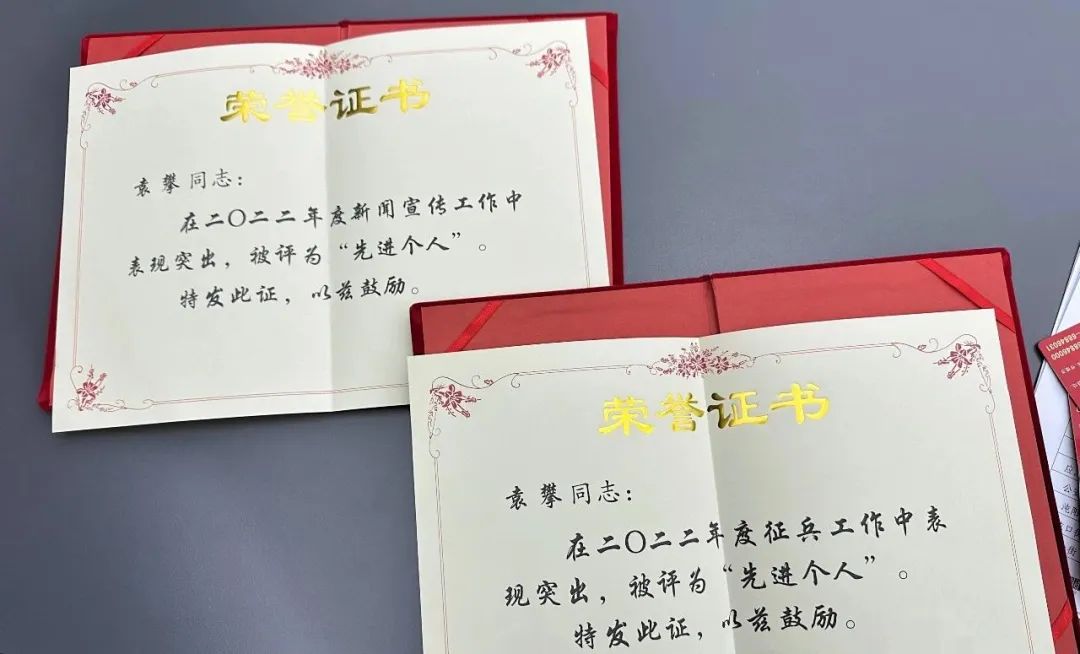 荣誉证书
袁攀同志：
在二〇二二年度新闻宣传工作中
表现突出，被评为“先进个人”。
特发此证，以兹鼓励。
荣誉证书
袁攀同志：
在二〇二二年度征兵工作中表
现突出，被评为“先进个人”。
特发此证，以兹鼓励。